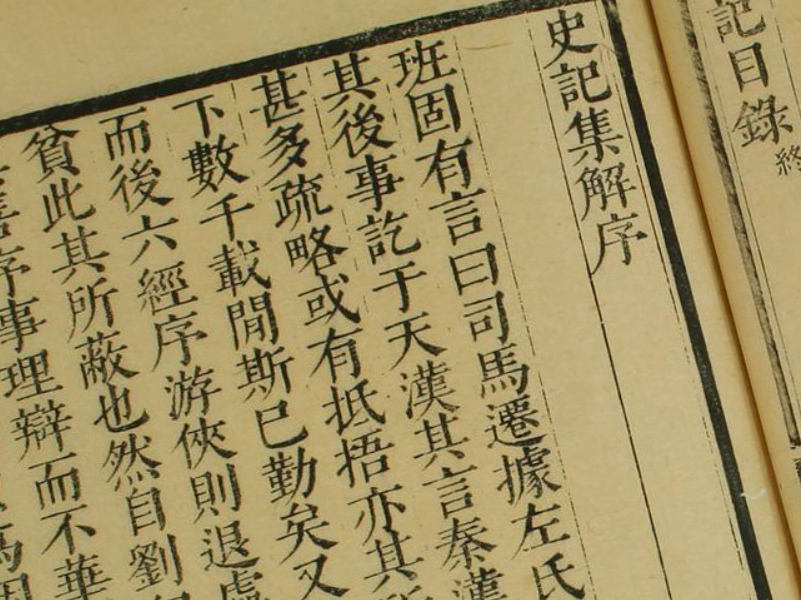 記目錄
終
史記集解序
班固有言曰司馬遷據左氏
其後事訖于天漢其言秦漢
甚多疏略或有抵捂亦其所
下數千載閒斯已勤矣又
而後六經序游俠則退處
貧此其所蔽也然自劉
序事理辯而不華